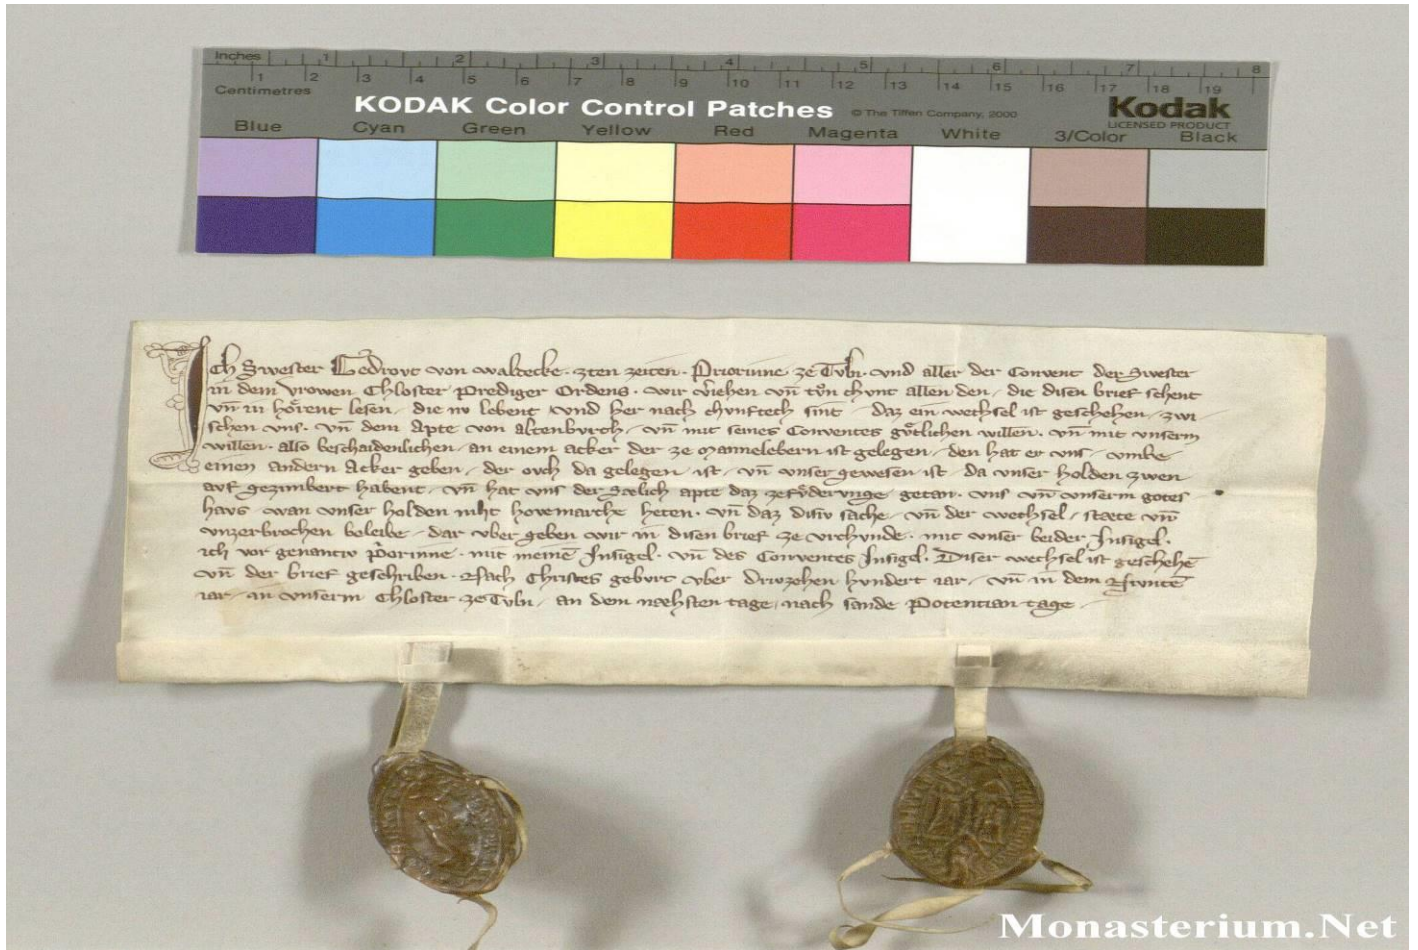 Inches 1 2 3 4 5 6 7 8
1 2 3 4 5 6 7 8 9 10 11 12 13 14 15 16 17 18 19
Centimetres
KODAK Color Control Patches © The Tiffen Company, 2000 Kodak
LICENSED PRODUCT
Blue Cyan Green Yellow Red Magenta White 3/Color Black
Ich Swester Gedrovt von waltecke · zten zeiten · Priorinne · ze Tvln · vnd aller der Convent der Swester
in dem Vrowen Chloster prediger Ordens · wir v̂iehen vn̄ tv̊n chvnt allen den / die disen brief sehent
vn̄ in hoͤrent lesen / die nv lebent / vnd her nach chvnftech sint / daz ein wechsel ist geschehen / zwi
schen vns · vn̄ dem Apte von altenbvrch / vn̄ mit seines Conventes gvͤtlichen willen · vn̄ mit vnserm
willen · also beschaidenlichen / an einem acker der ze Mannelebern ist gelegen / den hat er vns / vmbe
einen andern Acker geben / der ovch da gelegen ist / vn̄ vnser gewesen ist / da vnser holden zwen
avf gezimbert habent / vn̄ hat vns der Sælich apte daz ze fv̊dervnge getan · vns vn̄ vnserm gotes
havs / wan vnser holden niht hovemarche heten · vn̄ daz disiv sache / vn̄ der wechsel / stæte vn̄
vnzerbrochen beleibe / dar vber geben wir in disen brief ze vrchvnde · mit vnser beider Insigel ·
ich vor genantiv p̂orinne · mit meinē Insigel · vn̄ des Conventes Insigel · Diser wechsel ist geschehē
vn̄ der brief geschriben · Nach Christes gebvrt vber drivzehen hvndert iar / vn̄ in dem Nivntē
iar / in vnserm Chloster ze Tvln / an dem næhsten tage / nach sande Potentian tage
Monasterium.Net